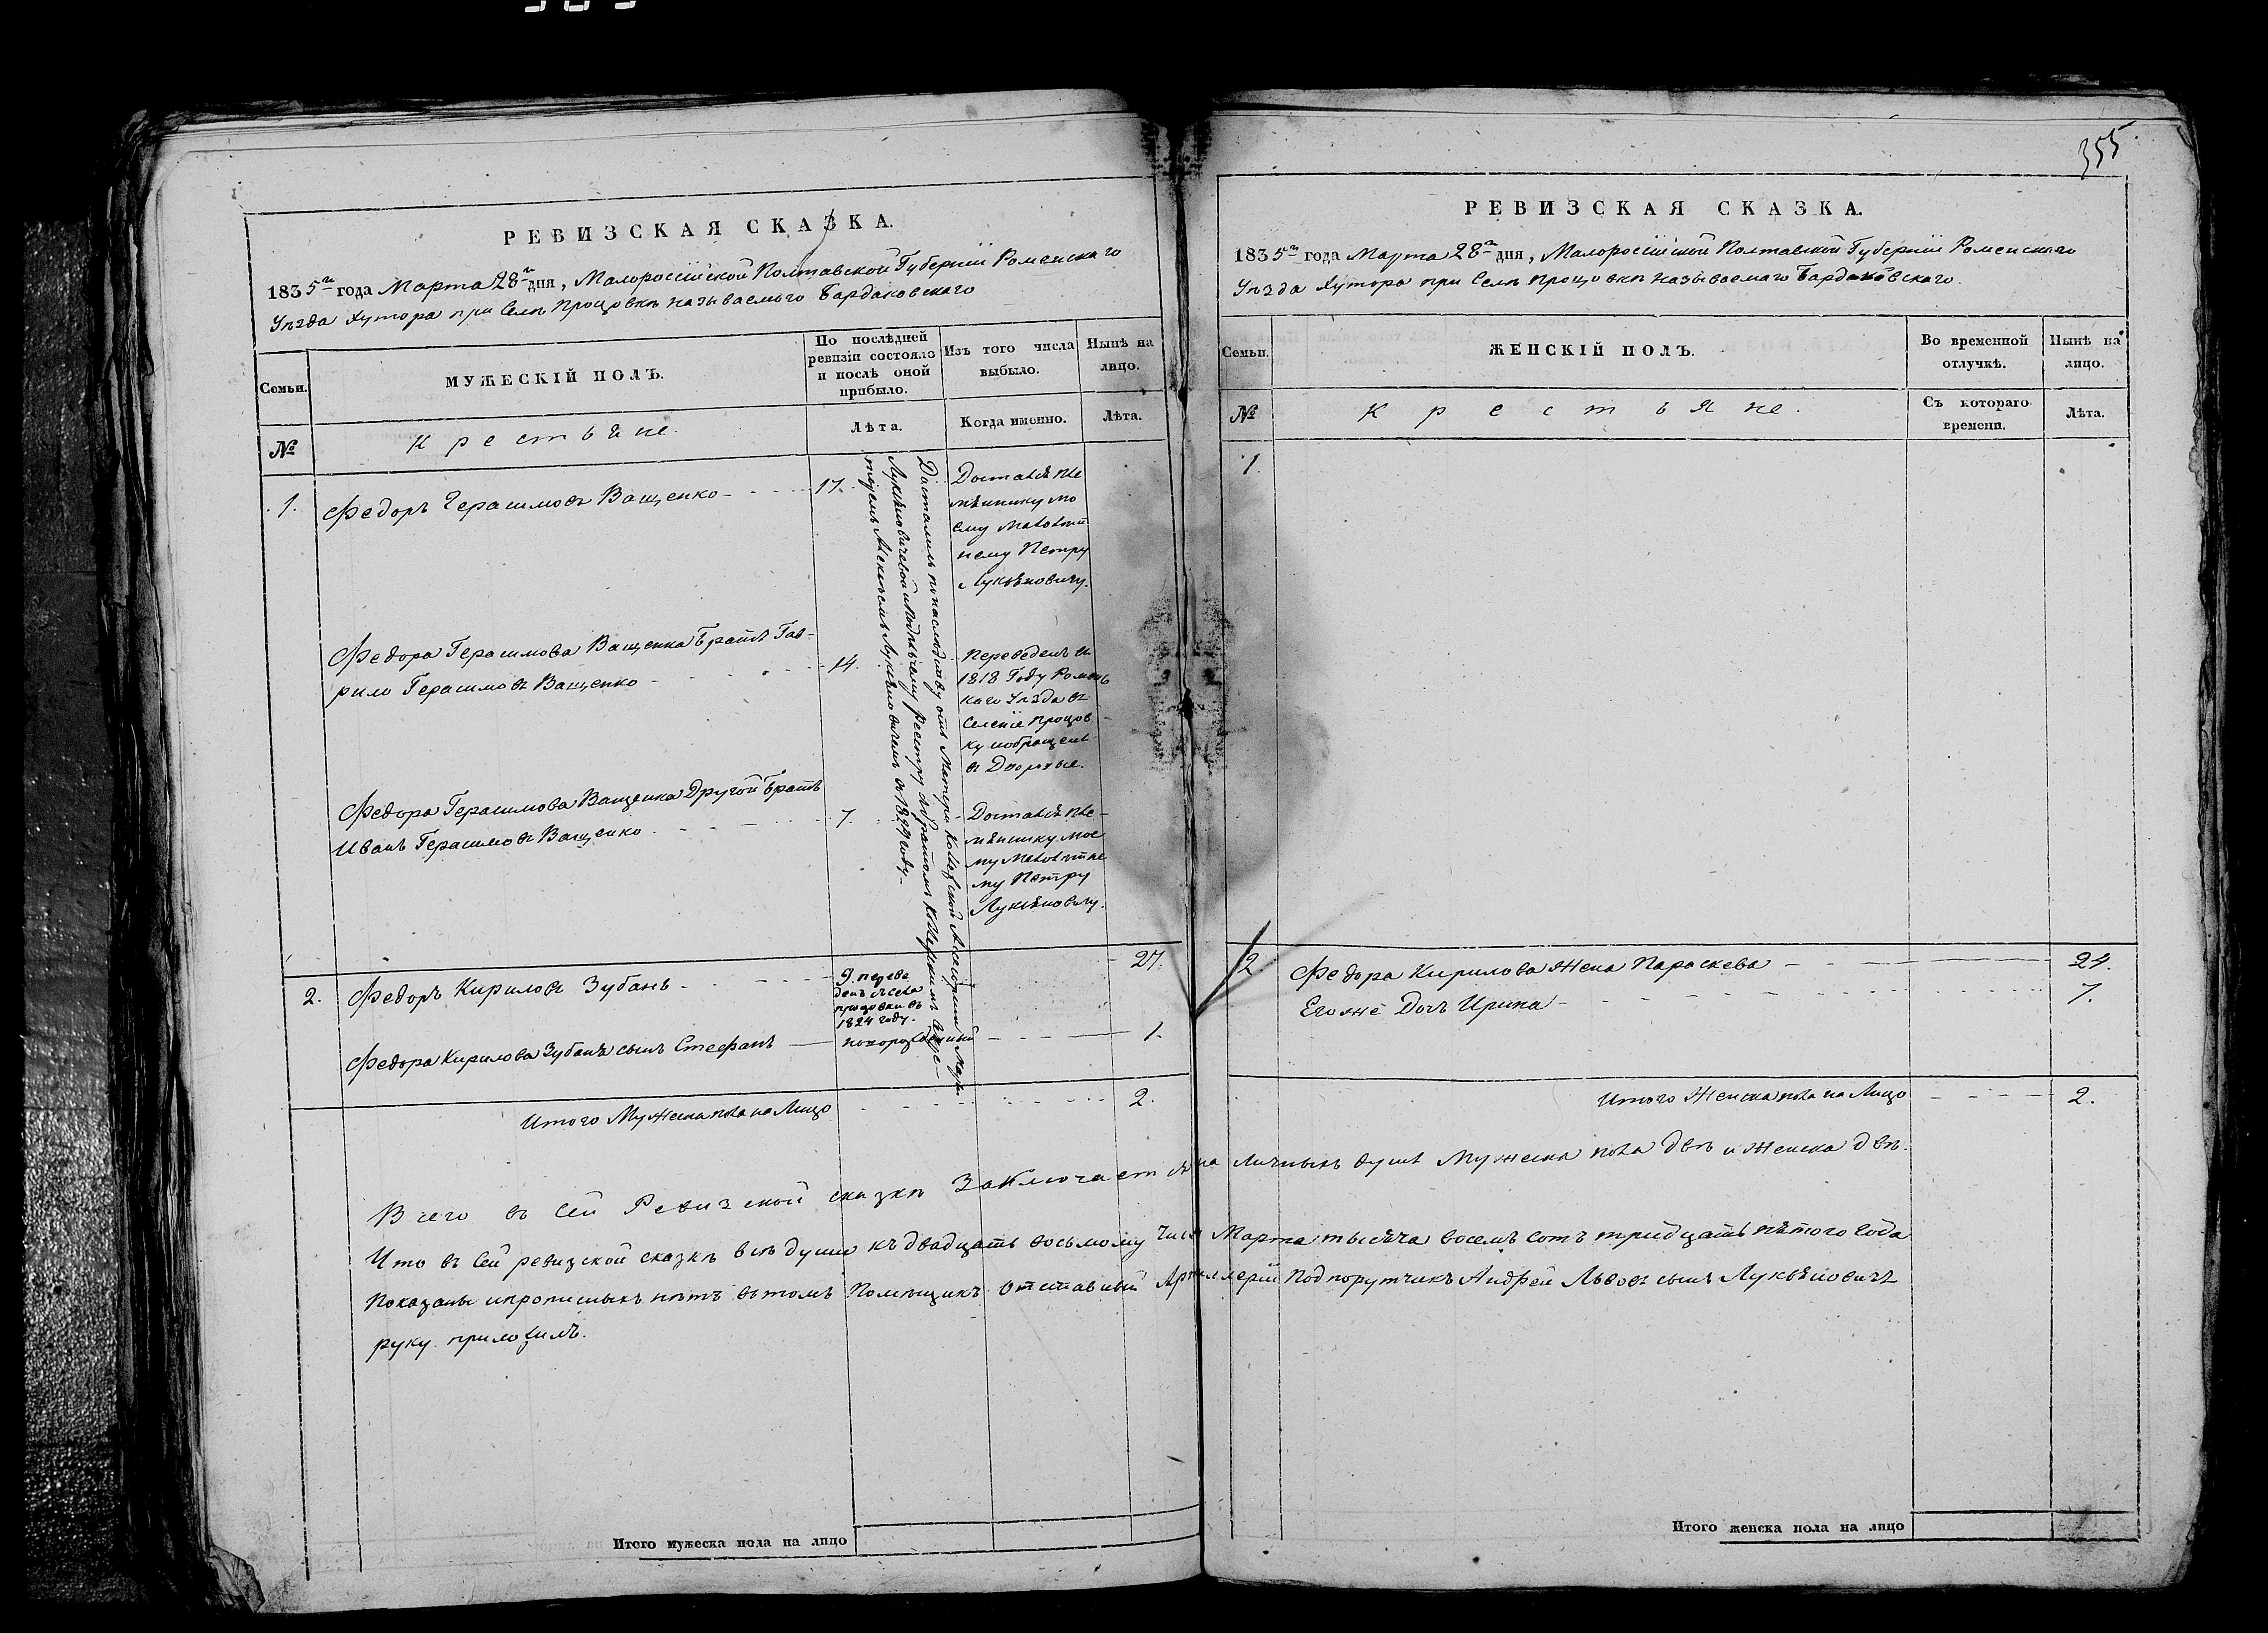 355
РЕВИЗСКАЯ СКАЗКА.
1835го года Марта 28го дня, Малоросcійской Полтавской Губерніи Роменскаго
Уѣзда Хутора при Селѣ Процовкѣ называемого Бардаковскаго
Семьи.
МУЖЕСКІЙ ПОЛЪ.
По послѣдней
ревизіи состояло
и послѣ оной
прибыло.
Изъ того числа
выбыло.
Нынѣ на
лицо.
№
Крестьяне.
Лѣта.
Когда именно.
Лѣта.
1.
Федоръ Герасимовъ Ващенко
17.
Достался пле
мѣннику мо
ему малолѣт
нему Петру
Лукьяновичу.
Федора Герасимова Ващенка Братъ Гав-
рило Герасимовъ Ващенко
14.
Переведенъ въ
1818 Году Роменс
каго Уѣзда въ
Селеніе Процов
ку и обращенъ
въ Дворовые.
Федора Герасимова Ващенка Другой Братъ
Иванъ Герасимовъ Ващенко
7.
Достался пле-
мѣннику мое
му малолѣтне
му Петру
Лукьяновичу.
Достались по наслѣдству отъ Матери
Лукьяновичевой
Алексѣемъ Лукьяновичемъ въ 1829 году.
2.
Федоръ Кириловъ Зубань
9. переве
денъ съ села
процовки въ
1824 году.
27.
Федора Кирилова Зубаня сынъ Стефанъ
новорожденный
1.
Итого Мужеска пола на Лицо
2.
РЕВИЗСКАЯ СКАЗКА.
1835го года Марта 28го дня, Малоросcійской Полтавской Губерніи Роменскаго
Уѣзда Хутора при Селѣ Процовкѣ называемаго Бардаковскаго.
Семьи.
ЖЕНСКІЙ ПОЛЪ.
Во временной
отлучкѣ.
Нынѣ на
лицо.
№
Крестьяне.
Съ котораго
времени.
Лѣта.
1.
2.
Федора Кирилова жена Параскева
24.
Его же Дочь Ирина
7.
Итого Женска пола на Лицо
2.
Всего въ сей Ревизской сказкѣ Заключается на личныхъ душъ Мужеска пола двѣ и Женска двѣ.
Что въ сей ревизской сказкѣ всѣ души къ двадцать восьмому числу Марта тысяча восемь сотъ тридцать пятого Года
показаны и прописныхъ нѣтъ въ томъ Помѣщикъ отставной Артиллеріи Подпорутчикъ Андрей Львовъ сынъ Лукьяновичъ
руку приложилъ.
Итого мужеска пола на лицо
Итого женска пола на лицо